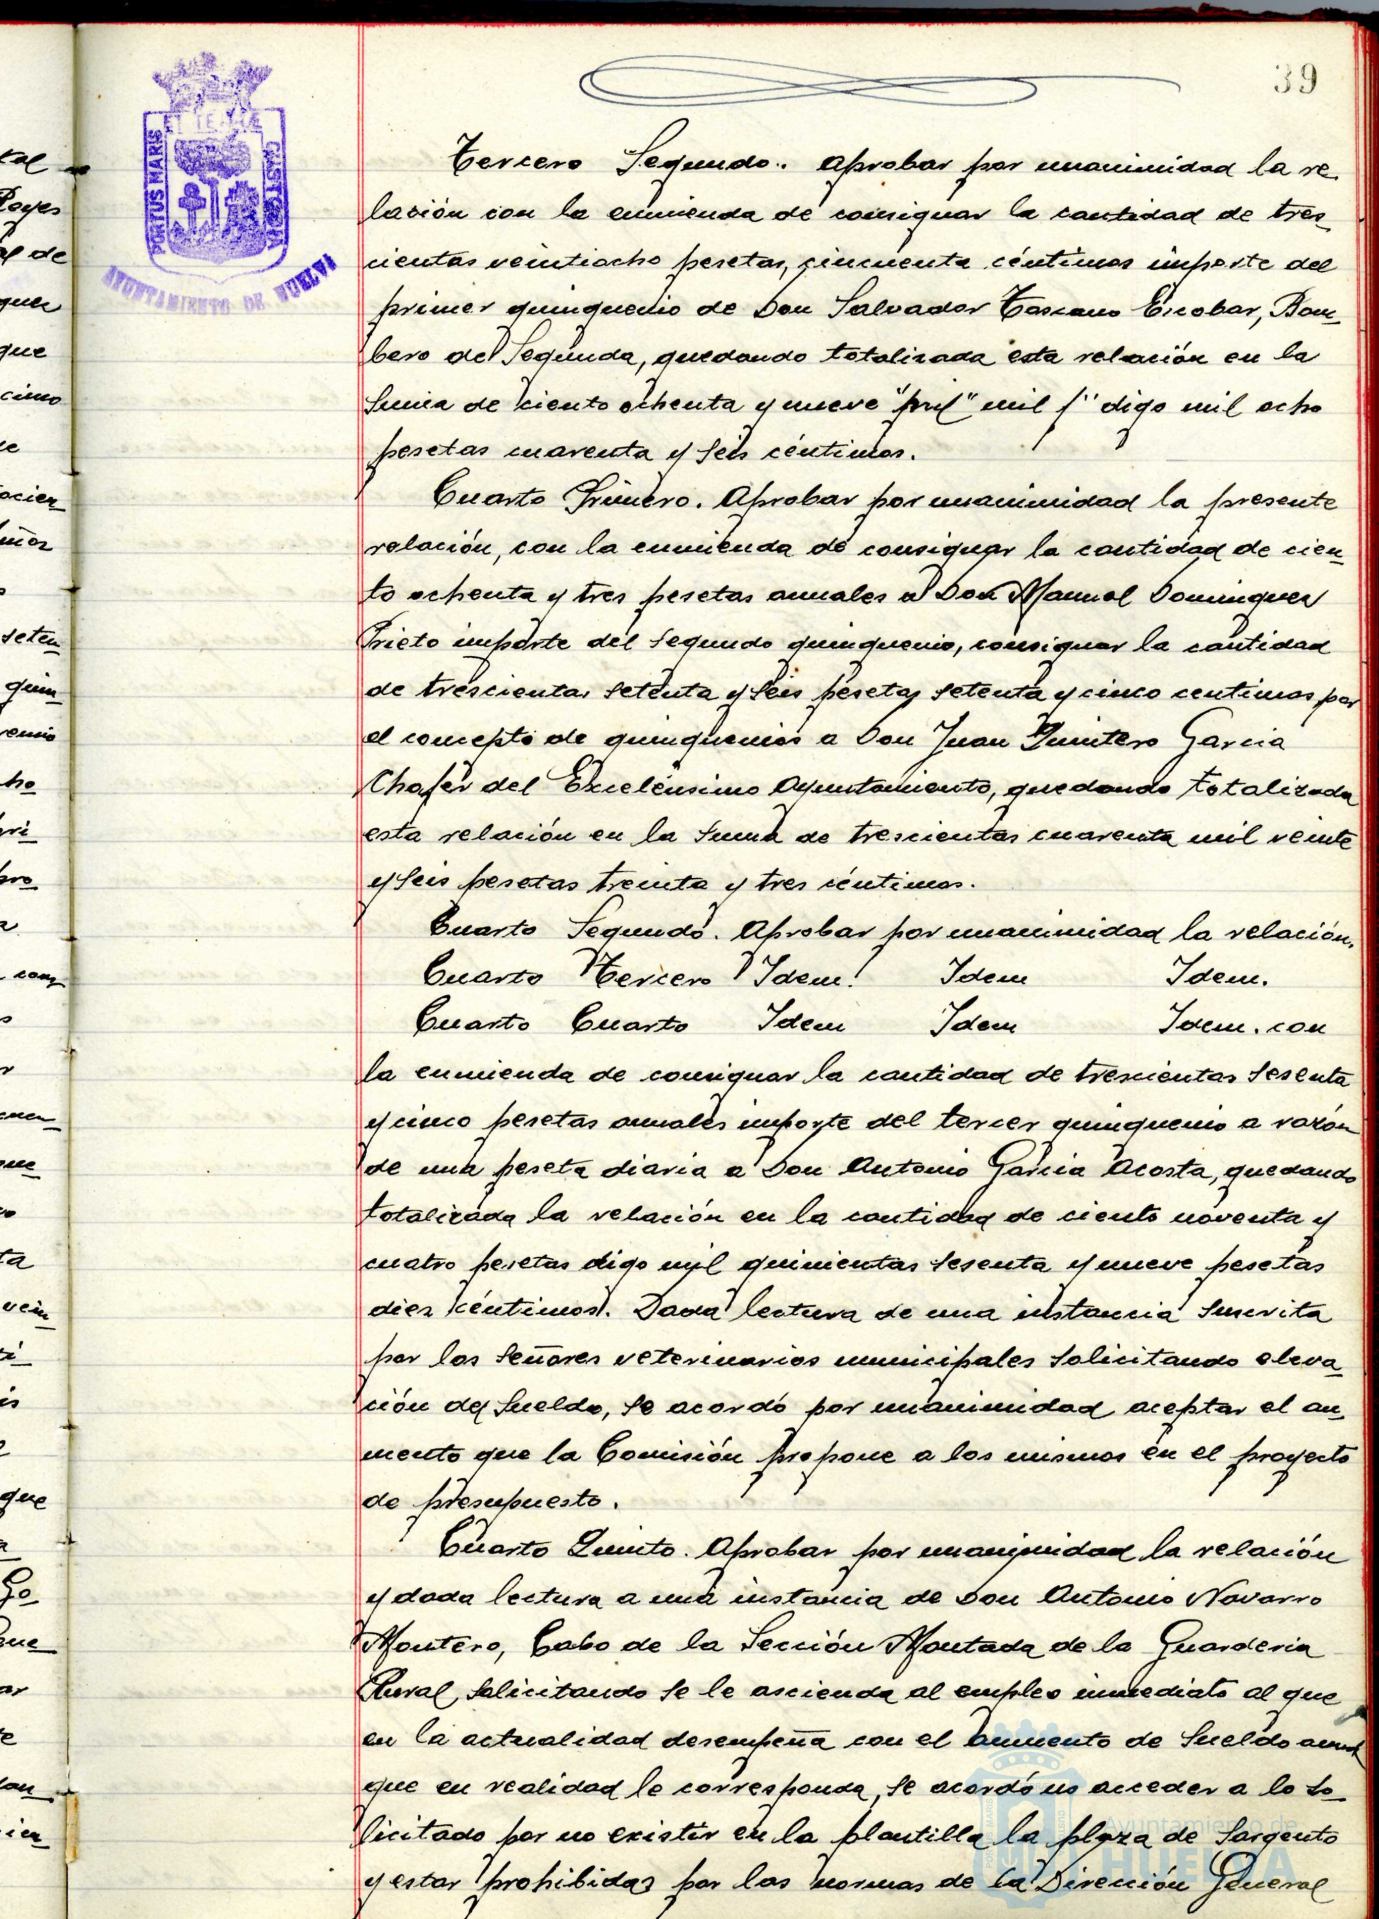 39
PORTUS MARIS ET TERRÆ CUSTODIA
AYUNTAMIENTO DE HUELVA
Tercero Segundo. Aprobar por unanimidad la re-
lación con la enmienda de consignar la cantidad de tres-
cientas veintiocho pesetas, cincuenta céntimos importe del
primer quinquenio de Don Salvador Toscano Escobar, Bom-
bero de Segunda, quedando totalizada esta relación en la
suma de ciento ochenta y nueve "mil" mil digo mil ocho
pesetas cuarenta y seis céntimos.
Cuarto Primero. Aprobar por unanimidad la presente
relación, con la enmienda de consignar la cantidad de cien-
to ochenta y tres pesetas anuales a Don Manuel Dominguez
Prieto importe del segundo quinquenio, consignar la cantidad
de trescientas setenta y seis pesetas setenta y cinco centimos por
el concepto de quinquenios a Don Juan Quintero Garcia
Chofer del Excelensimo Ayuntamiento, quedando totalizada
esta relación en la suma de trescientas cuarenta mil veinte
y seis pesetas treinta y tres céntimos.
Cuarto Segundo. Aprobar por unanimidad la relación.
Cuarto Tercero Idem. Idem Idem.
Cuarto Cuarto Idem Idem Idem. con
la enmienda de consignar la cantidad de trescientas sesenta
y cinco pesetas anuales importe del tercer quinquenio a razón
de una peseta diaria a Don Antonio Garcia Acosta, quedando
totalizada la relación en la cantidad de ciento noventa y
cuatro pesetas digo mil quinientas sesenta y nueve pesetas
diez céntimos. Dada lectura de una instancia suscrita
por los señores veterinarios municipales solicitando eleva-
ción de sueldo, se acordó por unanimidad aceptar el au-
mento que la Comisión propone a los mismos en el proyecto
de presupuesto.
Cuarto Quinto. Aprobar por unanimidad la relación
y dada lectura a una instancia de Don Antonio Navarro
Montero, Cabo de la Sección Montada de la Guarderia
Rural, solicitando se le ascienda al empleo inmediato al que
en la actualidad desempeña con el aumento de sueldo anual
que en realidad le corresponda, se acordó no acceder a lo so-
licitado por no existir en la plantilla la plaza de Sargento
y estar prohibidas por las normas de la Dirección General
Ayuntamiento de
HUELVA